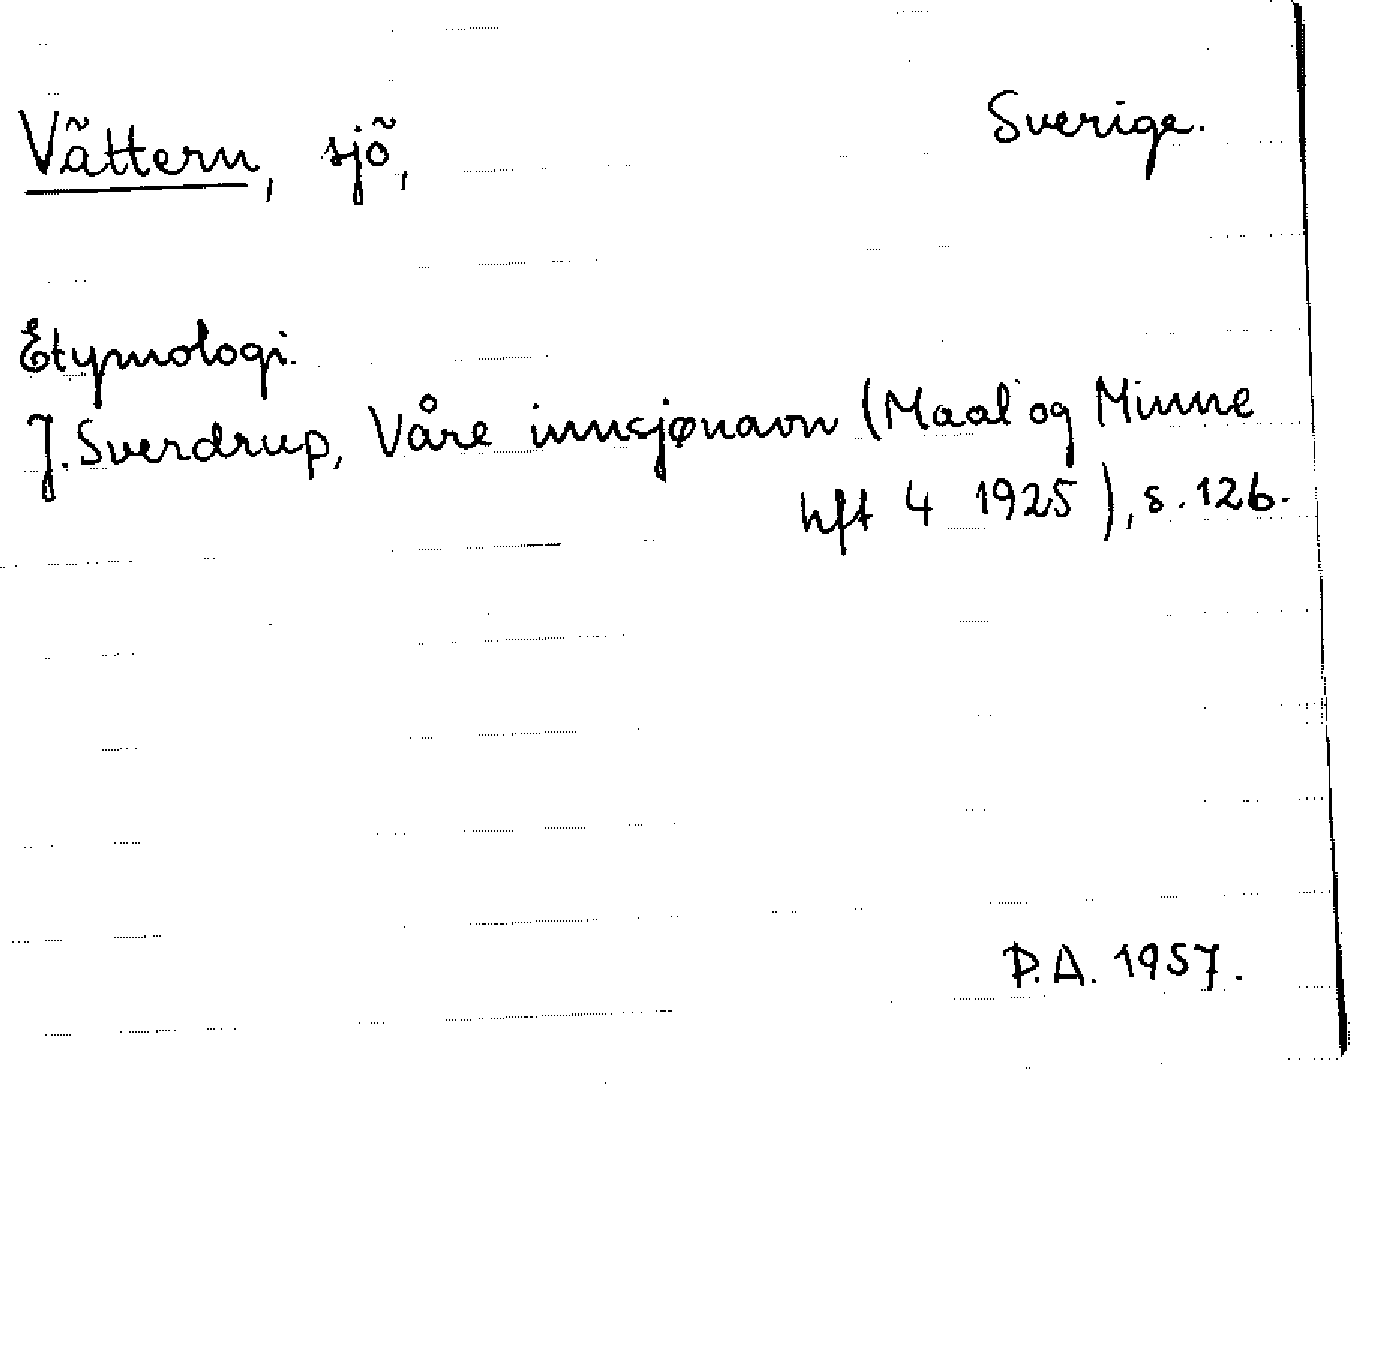 Vättern, sjö, Sverige.
Etymologi.
J. Sverdrup, Våre innsjønavn (Maal og Minne
hft 4 1925), s. 126.
P.A. 1957.